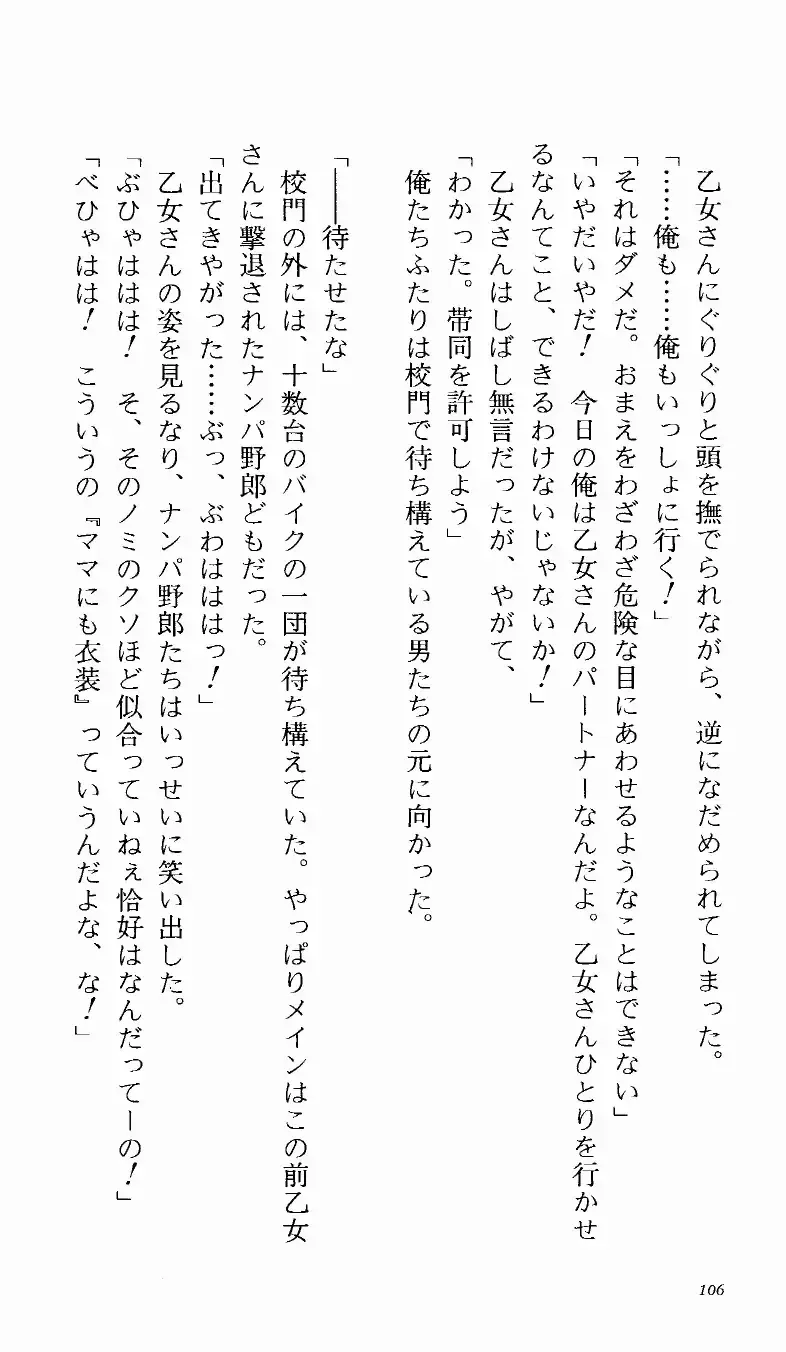 乙女さんにぐりぐりと頭を撫でられながら、逆になだめられてしまった。
「……俺も……俺もいっしょに行く！」
「それはダメだ。おまえをわざわざ危険な目にあわせるようなことはできない」
「いやだいやだ！　今日の俺は乙女さんのパートナーなんだよ。乙女さんひとりを行かせ
るなんてこと、できるわけないじゃないか！」
乙女さんはしばし無言だったが、やがて、
「わかった。帯同を許可しよう」
俺たちふたりは校門で待ち構えている男たちの元に向かった。
「――待たせたな」
校門の外には、十数台のバイクの一団が待ち構えていた。やっぱりメインはこの前乙女
さんに撃退されたナンパ野郎どもだった。
「出てきやがった……ぶっ、ぶわはははっ！」
乙女さんの姿を見るなり、ナンパ野郎たちはいっせいに笑い出した。
「ぶひゃははは！　そ、そのノミのクソほど似合っていねぇ恰好はなんだってーの！」
「べひゃはは！　こういうの『ママにも衣装』っていうんだよな、な！」
106